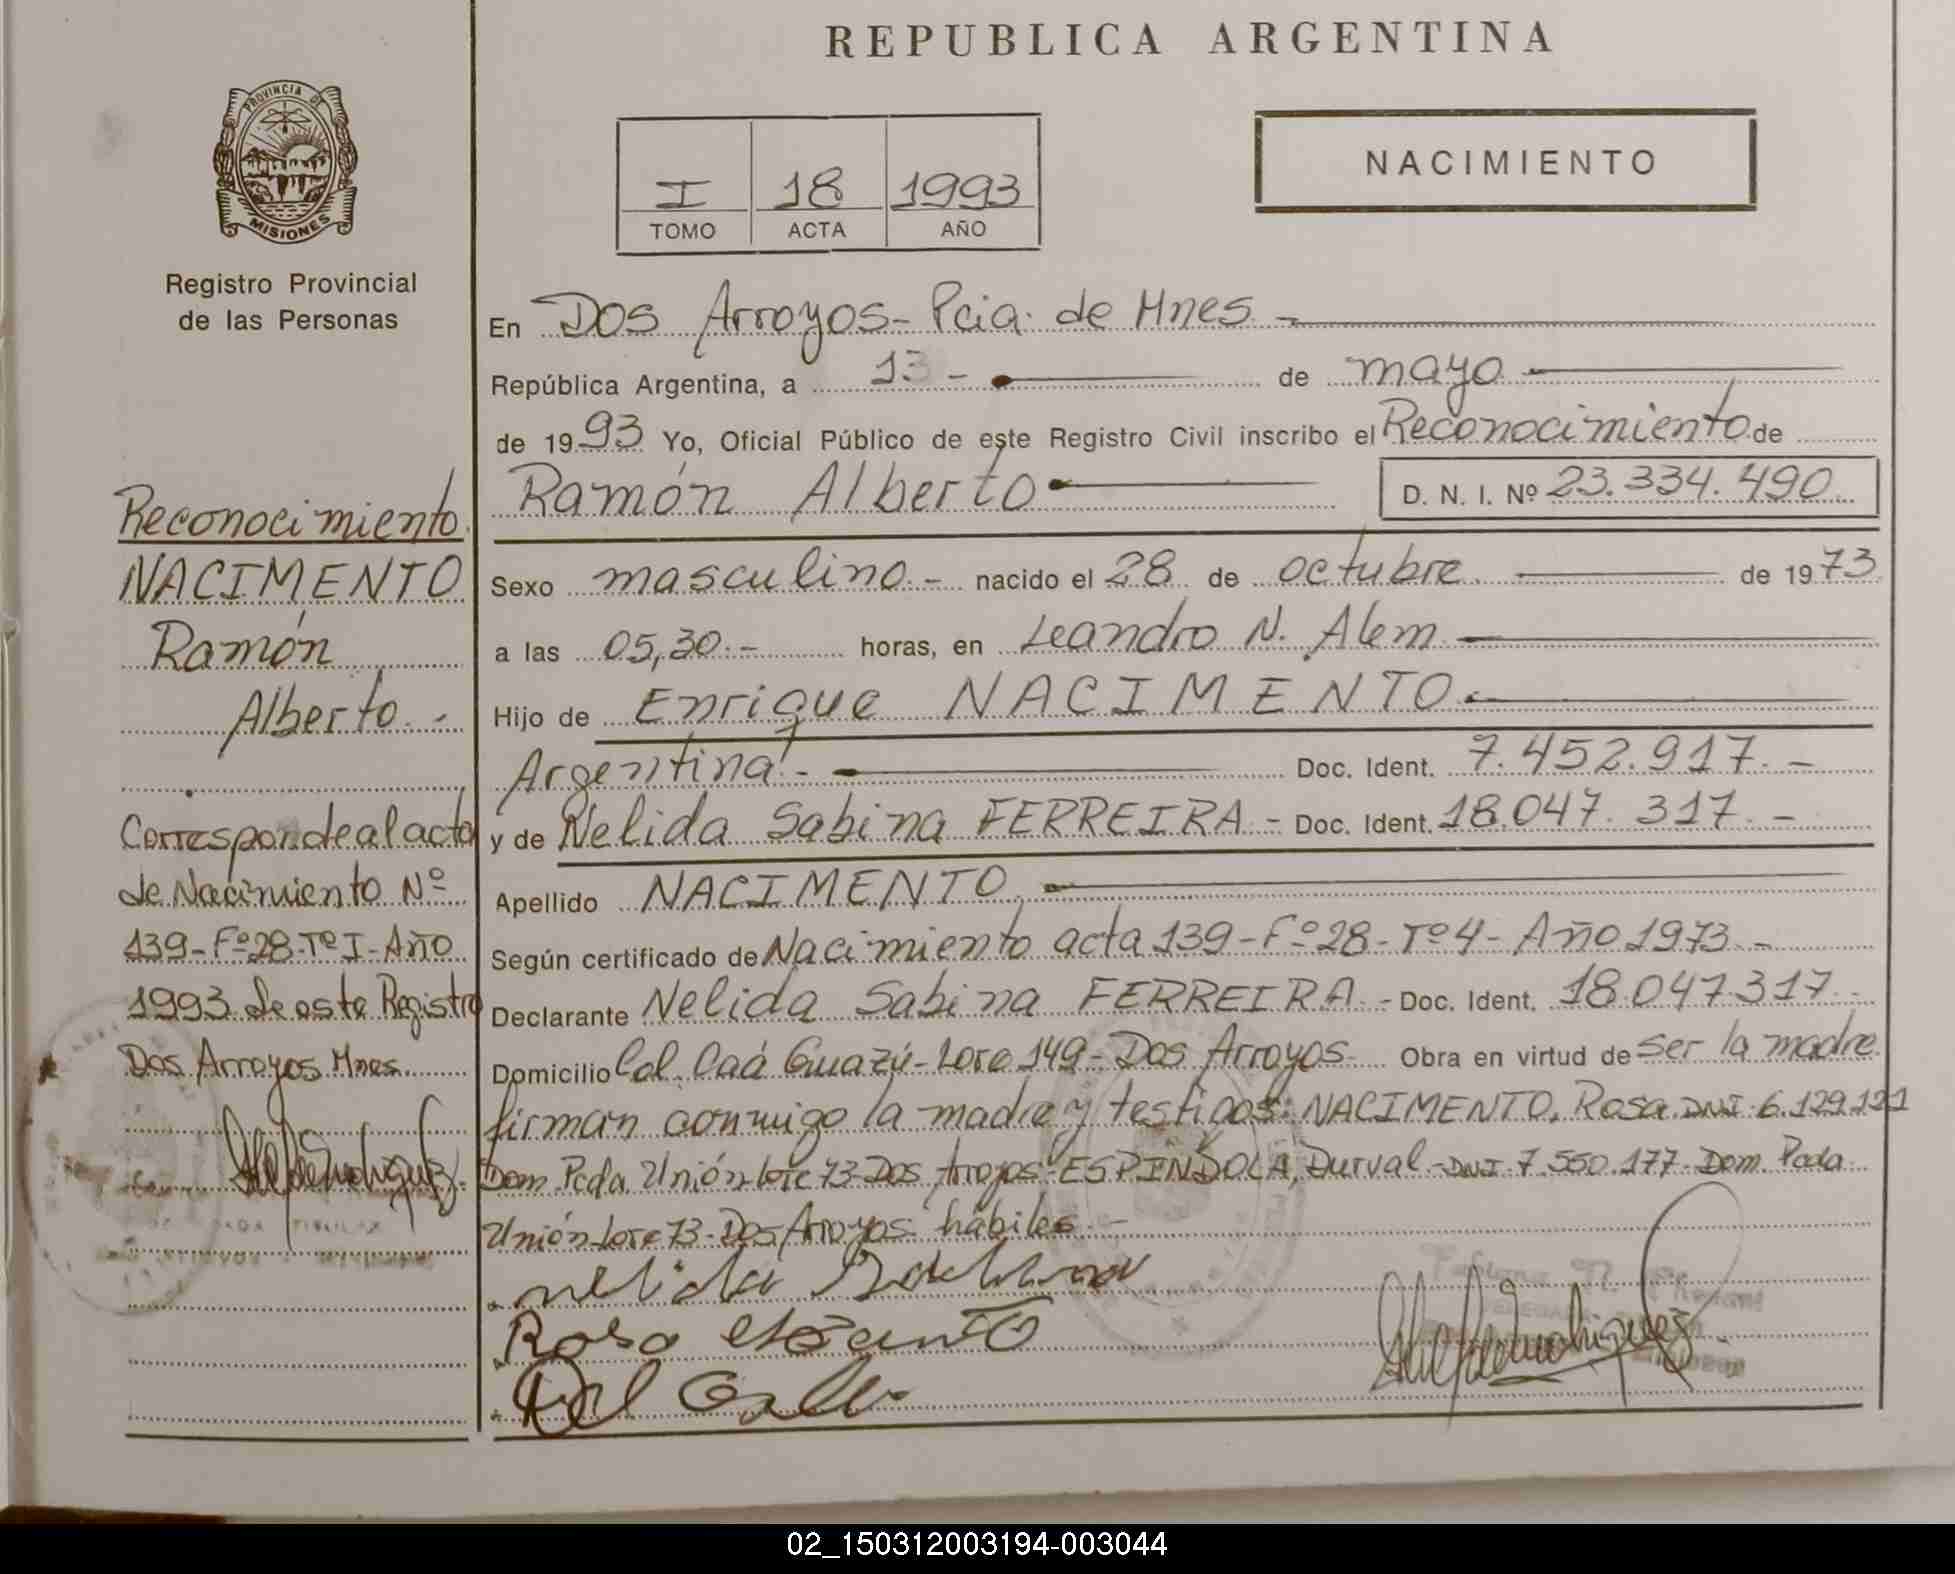 REPUBLICA ARGENTINA
PROVINCIA DE
MISIONES
Registro Provincial
de las Personas
NACIMIENTO
I 18 1993
TOMO ACTA AÑO
En Dos Arroyos - Pcia. de Mnes -
República Argentina, a 13 - de mayo
de 1993 Yo, Oficial Público de este Registro Civil inscribo el Reconocimiento de
Ramón Alberto D. N. I. Nº 23.334.490
Sexo masculino.- nacido el 28 de octubre de 1973
a las 05,30.- horas, en Leandro N. Alem
Hijo de Enrique NACIMENTO
Argentina.- Doc. Ident. 7.452.917.-
y de Nelida Sabina FERREIRA - Doc. Ident. 18.047.317.-
Apellido NACIMENTO
Según certificado de Nacimiento acta 139-Fº28-Tº4-Año 1973.-
Declarante Nelida Sabina FERREIRA.- Doc. Ident. 18.047317.-
Domicilio Col. Caá Guazú-Lote 149-Dos Arroyos Obra en virtud de ser la madre
firman conmigo la madre y testigos: NACIMENTO, Rosa DNI 6.129.121
Dom. Pcda. Unión Lote 73-Dos Arroyos-ESPINDOLA, Durval-DNI 7.550.177-Dom. Pcda
Unión Lote 73-Dos Arroyos hábiles.-
nelida
Rosa
Reconocimiento
NACIMENTO
Ramón
Alberto.-
Corresponde al acta
de Nacimiento Nº
139-Fº28-Tº I-Año
1993 de este Registro
Dos Arroyos Mnes.
02_150312003194-003044